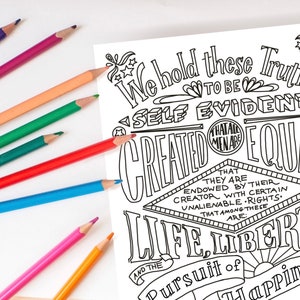 We hold these Truth
TO BE
SELF EVIDENT
THAT ALL
MEN ARE
CREATED EQUA
THAT
THEY ARE
ENDOWED BY THEIR
CREATOR WITH CERTAIN
UNALIENABLE RIGHTS
THAT AMONG THESE
ARE
LIFE, LIBER
AND THE
Pursuit of
Happin